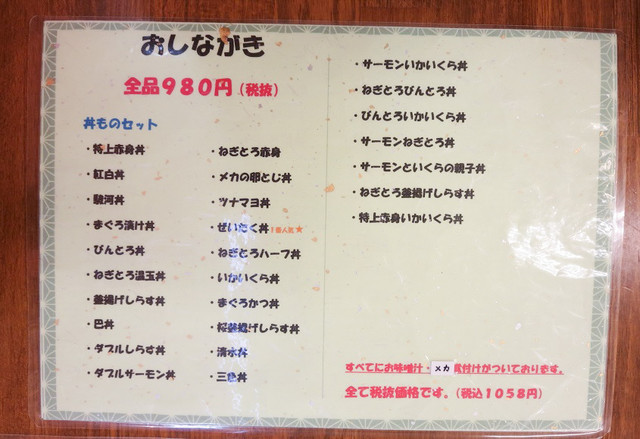 おしながき
全品980円(税抜)
丼ものセット
・特上赤身丼
・紅白丼
・駿河丼
・まぐろ漬け丼
・びんとろ丼
・ねぎとろ温玉丼
・釜揚げしらす丼
・巴丼
・ダブルしらす丼
・ダブルサーモン丼
・ねぎとろ赤身
・メカの卵とじ丼
・ツナマヨ丼
・ぜいたく丼 1番人気★
・ねぎとろハーフ丼
・いかいくら丼
・まぐろかつ丼
・桜釜揚げしらす丼
・清水丼
・三色丼
・サーモンいかいくら丼
・ねぎとろびんとろ丼
・びんとろいかいくら丼
・サーモンねぎとろ丼
・サーモンといくらの親子丼
・ねぎとろ釜揚げしらす丼
・特上赤身いかいくら丼
すべてにお味噌汁・メカ 付けがついております。
全て税抜価格です。(税込1058円)